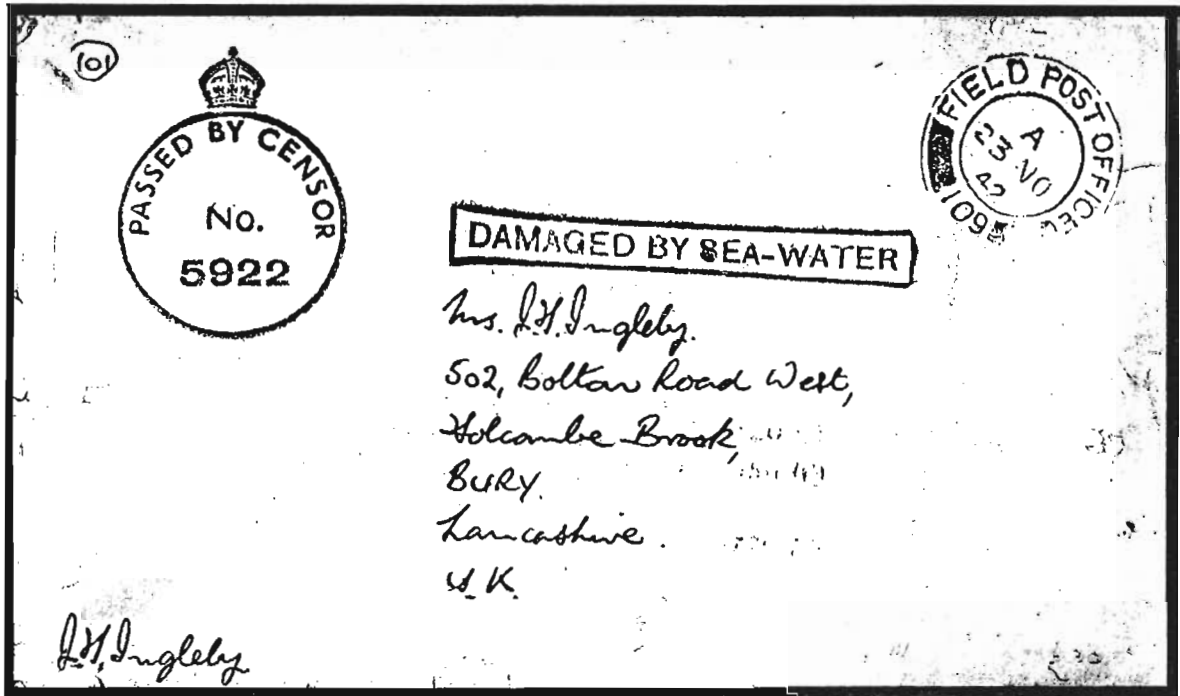 101
PASSED BY CENSOR
No.
5922
FIELD POST OFFICE
A
23 NO
42
109
DAMAGED BY SEA-WATER
Mrs. J.H. Ingleby.
502, Bolton Road West,
Holcombe Brook,
BURY.
Lancashire.
U.K.
J.H. Ingleby